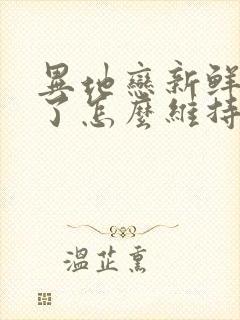 異地戀新鮮
了怎麼維持
溫芷熏